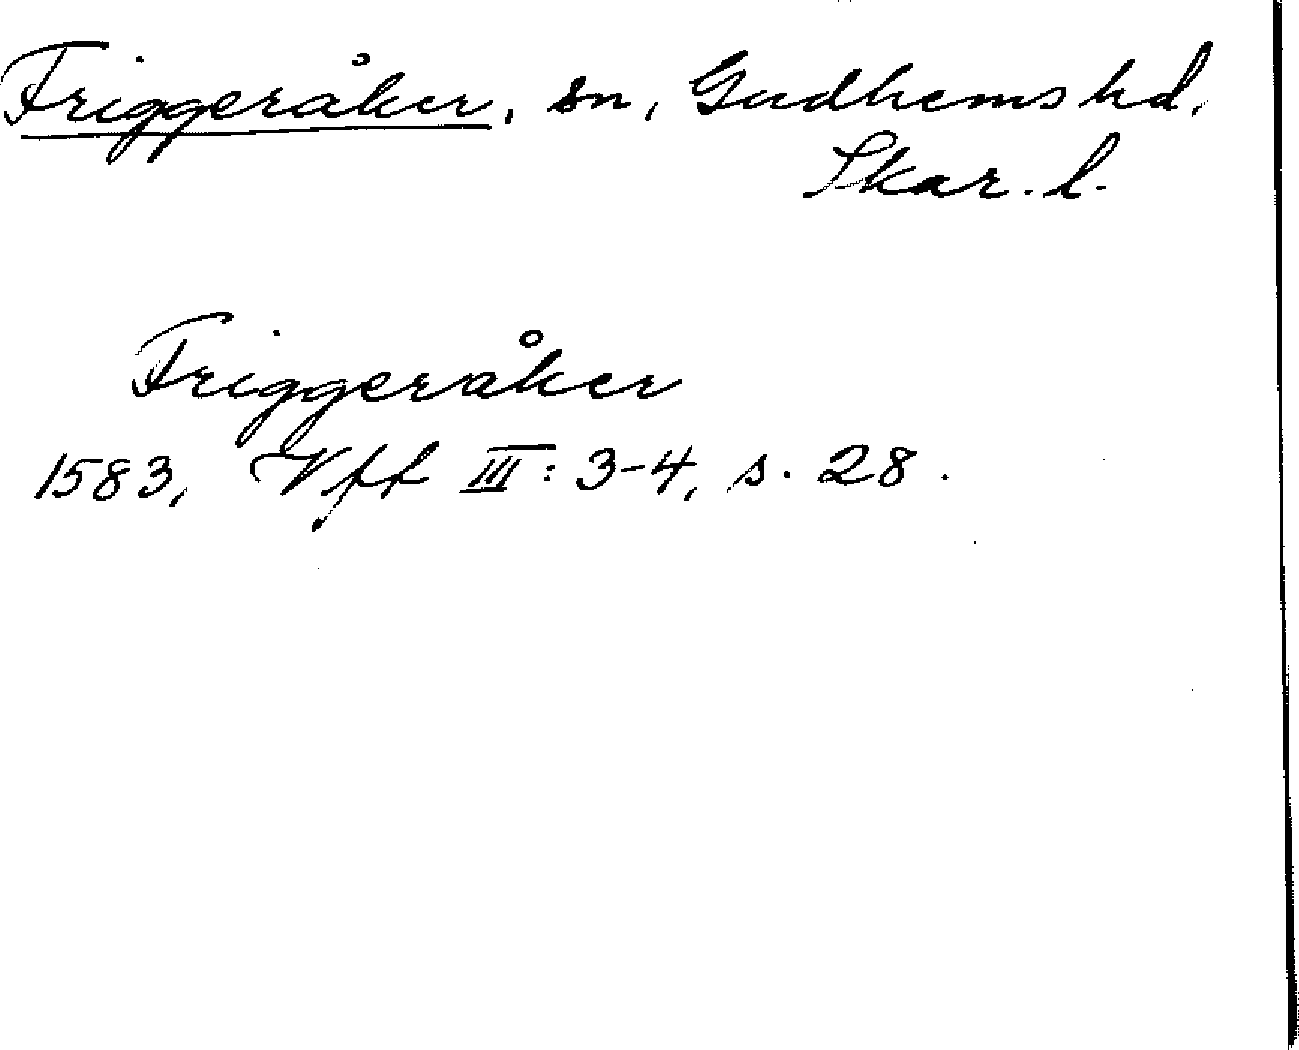 Friggeråker, sn, Gudhems hd,
Skar. l.
Friggeråker
1583, Vft III: 3-4, s. 28.